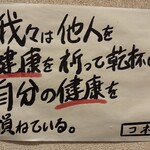 我々は他人を
健康を祈って乾杯し
自分の健康を
損ねている。